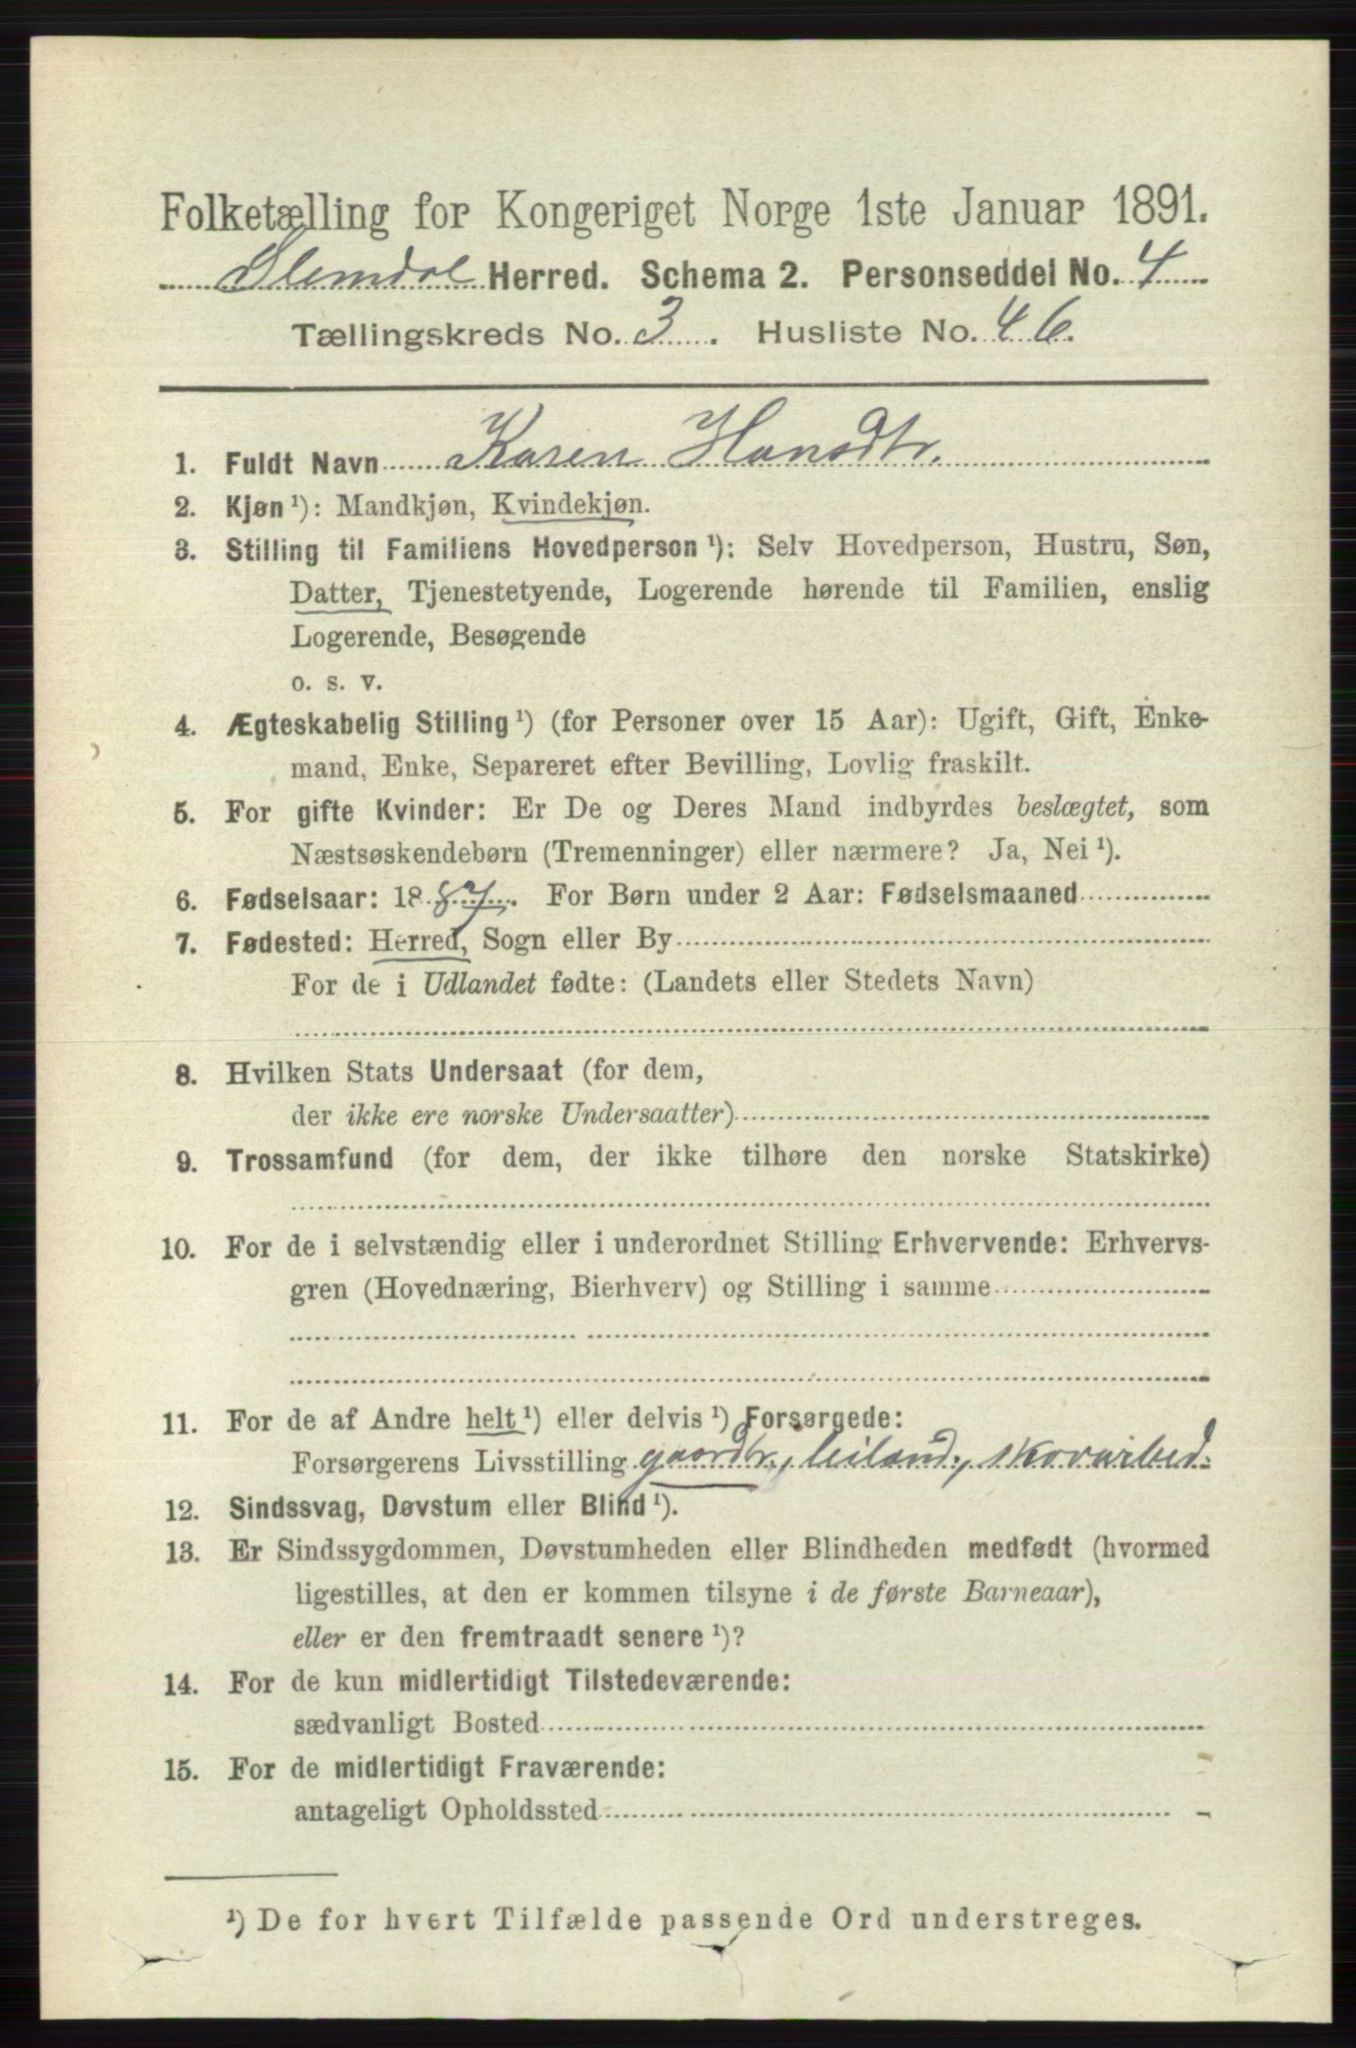 Folketælling for Kongeriget Norge 1ste Januar 1891.
Slemdal Herred. Schema 2. Personseddel No. 4
Tællingskreds No. 3. Husliste No. 46.
1. Fuldt Navn Karen Hansdtr.
2. Kjøn ¹): Mandkjøn, Kvindekjøn.
3. Stilling til Familiens Hovedperson ¹): Selv Hovedperson, Hustru, Søn,
Datter, Tjenestetyende, Logerende hørende til Familien, enslig
Logerende, Besøgende
o. s. v.
4. Ægteskabelig Stilling ¹) (for Personer over 15 Aar): Ugift, Gift, Enke-
mand, Enke, Separeret efter Bevilling, Lovlig fraskilt.
5. For gifte Kvinder: Er De og Deres Mand indbyrdes beslægtet, som
Næstsøskendebørn (Tremenninger) eller nærmere? Ja, Nei ¹).
6. Fødselsaar: 1887. For Børn under 2 Aar: Fødselsmaaned
7. Fødested: Herred, Sogn eller By
For de i Udlandet fødte: (Landets eller Stedets Navn)
8. Hvilken Stats Undersaat (for dem,
der ikke ere norske Undersaatter)
9. Trossamfund (for dem, der ikke tilhøre den norske Statskirke)
10. For de i selvstændig eller i underordnet Stilling Erhvervende: Erhvervs-
gren (Hovednæring, Bierhverv) og Stilling i samme
11. For de af Andre helt ¹) eller delvis ¹) Forsørgede:
Forsørgerens Livsstilling gaardbr., leiland., skovarbed.
12. Sindssvag, Døvstum eller Blind ¹).
13. Er Sindssygdommen, Døvstumheden eller Blindheden medfødt (hvormed
ligestilles, at den er kommen tilsyne i de første Barneaar),
eller er den fremtraadt senere ¹)?
14. For de kun midlertidigt Tilstedeværende:
sædvanligt Bosted
15. For de midlertidigt Fraværende:
antageligt Opholdssted
¹) De for hvert Tilfælde passende Ord understreges.